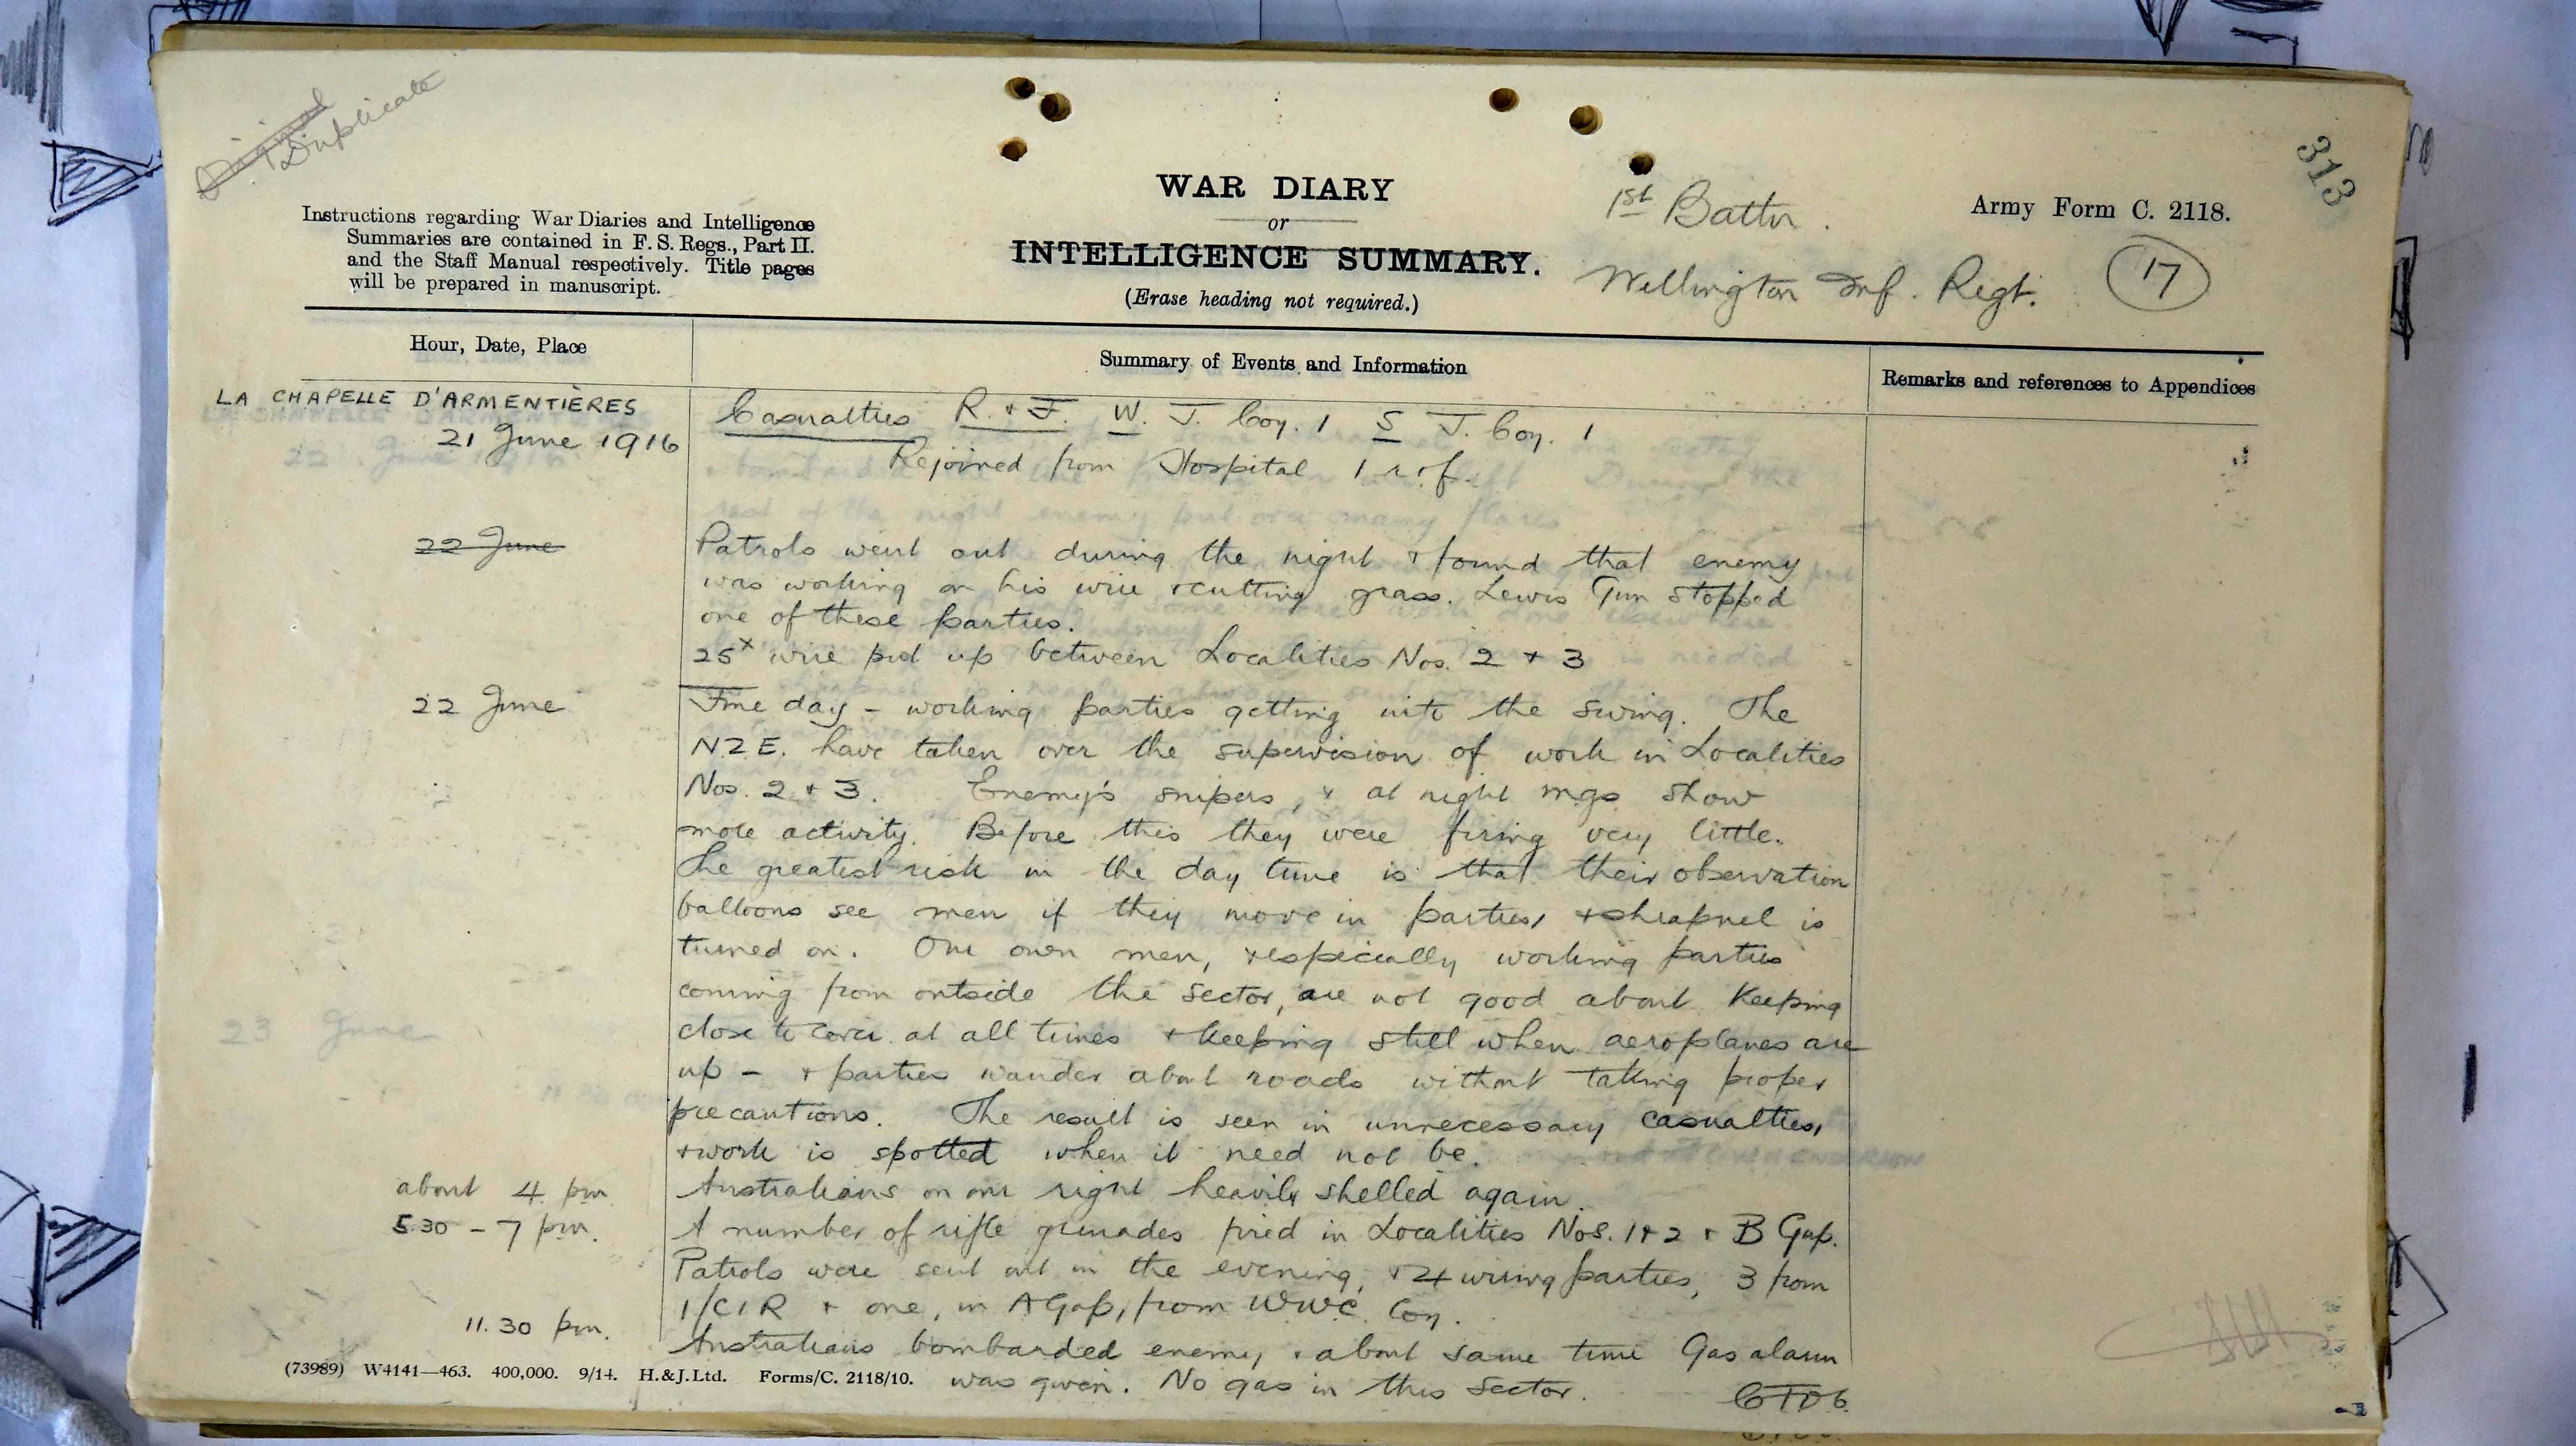 Original
Duplicate
313
WAR DIARY
or
INTELLIGENCE SUMMARY.
(Erase heading not required.)
Instructions regarding War Diaries and Intelligence
Summaries are contained in F. S. Regs., Part II.
and the Staff Manual respectively. Title pages
will be prepared in manuscript.
1st Battn.
Wellington Inf. Regt.
Army Form C. 2118.
17
Hour, Date, Place
Summary of Events and Information
Remarks and references to Appendices
LA CHAPELLE D'ARMENTIÈRES
21 June 1916
Casualties R. + F. W. T. Coy. 1 S T. Coy. 1
Rejoined from Hospital 1 r. & f.
22 June
Patrols went out during the night + found that enemy
was working on his wire + cutting grass. Lewis Gun stopped
one of these parties.
25x wire put up between Localities Nos. 2 + 3
22 June
Fine day – working parties getting into the swing. The
N.Z.E. have taken over the supervision of work in Localities
Nos. 2 + 3. Enemy's snipers, + at night mgs show
more activity. Before this they were firing very little.
The greatest risk in the day time is that their observation
balloons see men if they move in parties, + shrapnel is
turned on. Our own men, + especially working parties
coming from outside the sector, are not good about keeping
close to cover at all times + keeping still when aeroplanes are
up – + parties wander about roads without taking proper
precautions. The result is seen in unnecessary casualties,
+ work is spotted when it need not be.
about 4 pm. Australians on our right heavily shelled again.
5.30 – 7 pm. A number of rifle grenades fired in Localities Nos. 1 + 2 + B Gap.
Patrols were sent out in the evening, + 4 wiring parties, 3 from
1/CIR + one, in A Gap, from WWC Coy.
11.30 pm. Australians bombarded enemy, + about same time Gas alarm
was given. No gas in this sector.
(73989) W4141—463. 400,000. 9/14. H.&J.Ltd. Forms/C. 2118/10.